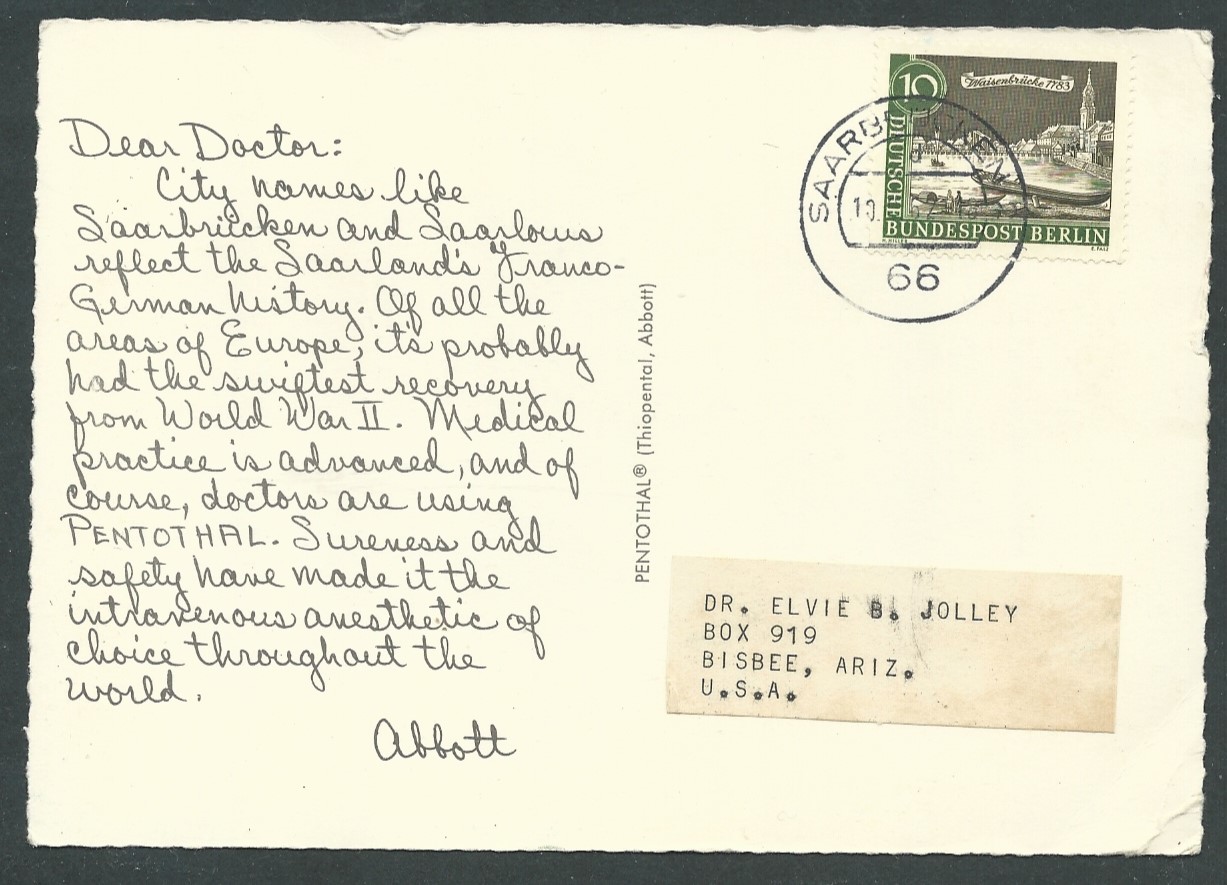 Dear Doctor:
City names like
Saarbrücken and Saarlouis
reflect the Saarland's Franco-
German history. Of all the
areas of Europe, it's probably
had the swiftest recovery
from World War II. Medical
practice is advanced, and of
course, doctors are using
PENTOTHAL. Sureness and
safety have made it the
intravenous anesthetic of
choice throughout the
world.
Abbott
PENTOTHAL® (Thiopental, Abbott)
10
Waisenbrücke 1783
DEUTSCHE
BUNDESPOST BERLIN
SAARBRÜCKEN
66
DR. ELVIE B. JOLLEY
BOX 919
BISBEE, ARIZ.
U.S.A.